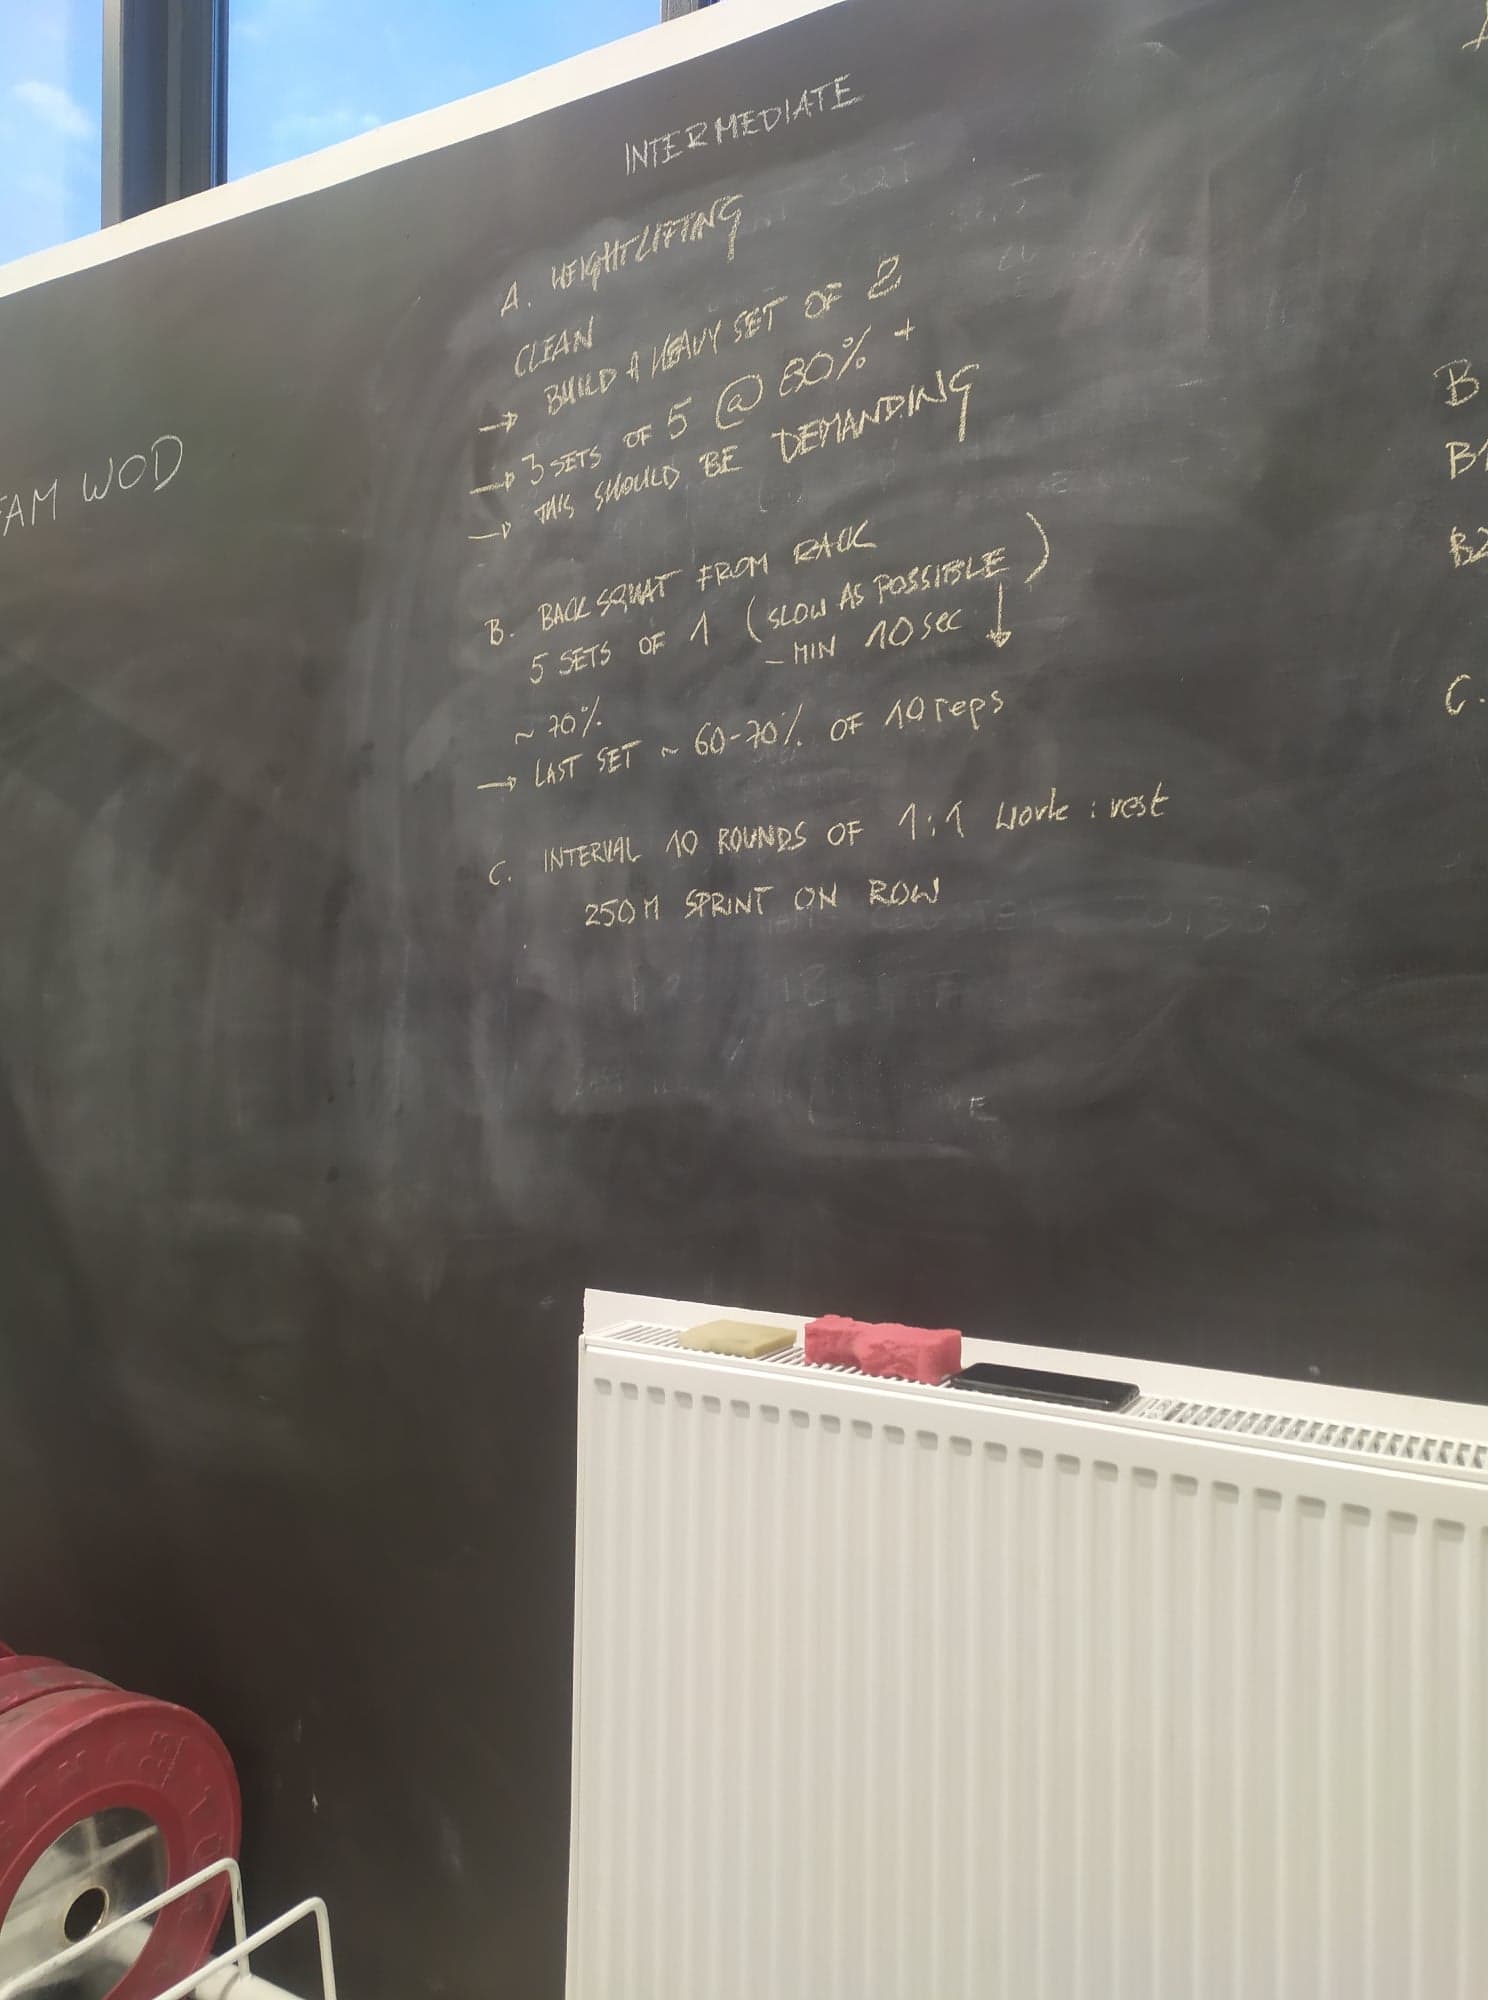 INTERMEDIATE
A. WEIGHTLIFTING
CLEAN
→ BUILD A HEAVY SET OF 2
→ 3 SETS OF 5 @ 80% +
→ THIS SHOULD BE DEMANDING
B. BACK SQUAT FROM RACK
5 SETS OF 1 (SLOW AS POSSIBLE)
- MIN 10 sec ↓
~ 70%
→ LAST SET ~ 60-70% OF 10 reps
C. INTERVAL 10 ROUNDS OF 1:1 work : rest
250M SPRINT ON ROW
WOD
B
B1
B2
C.